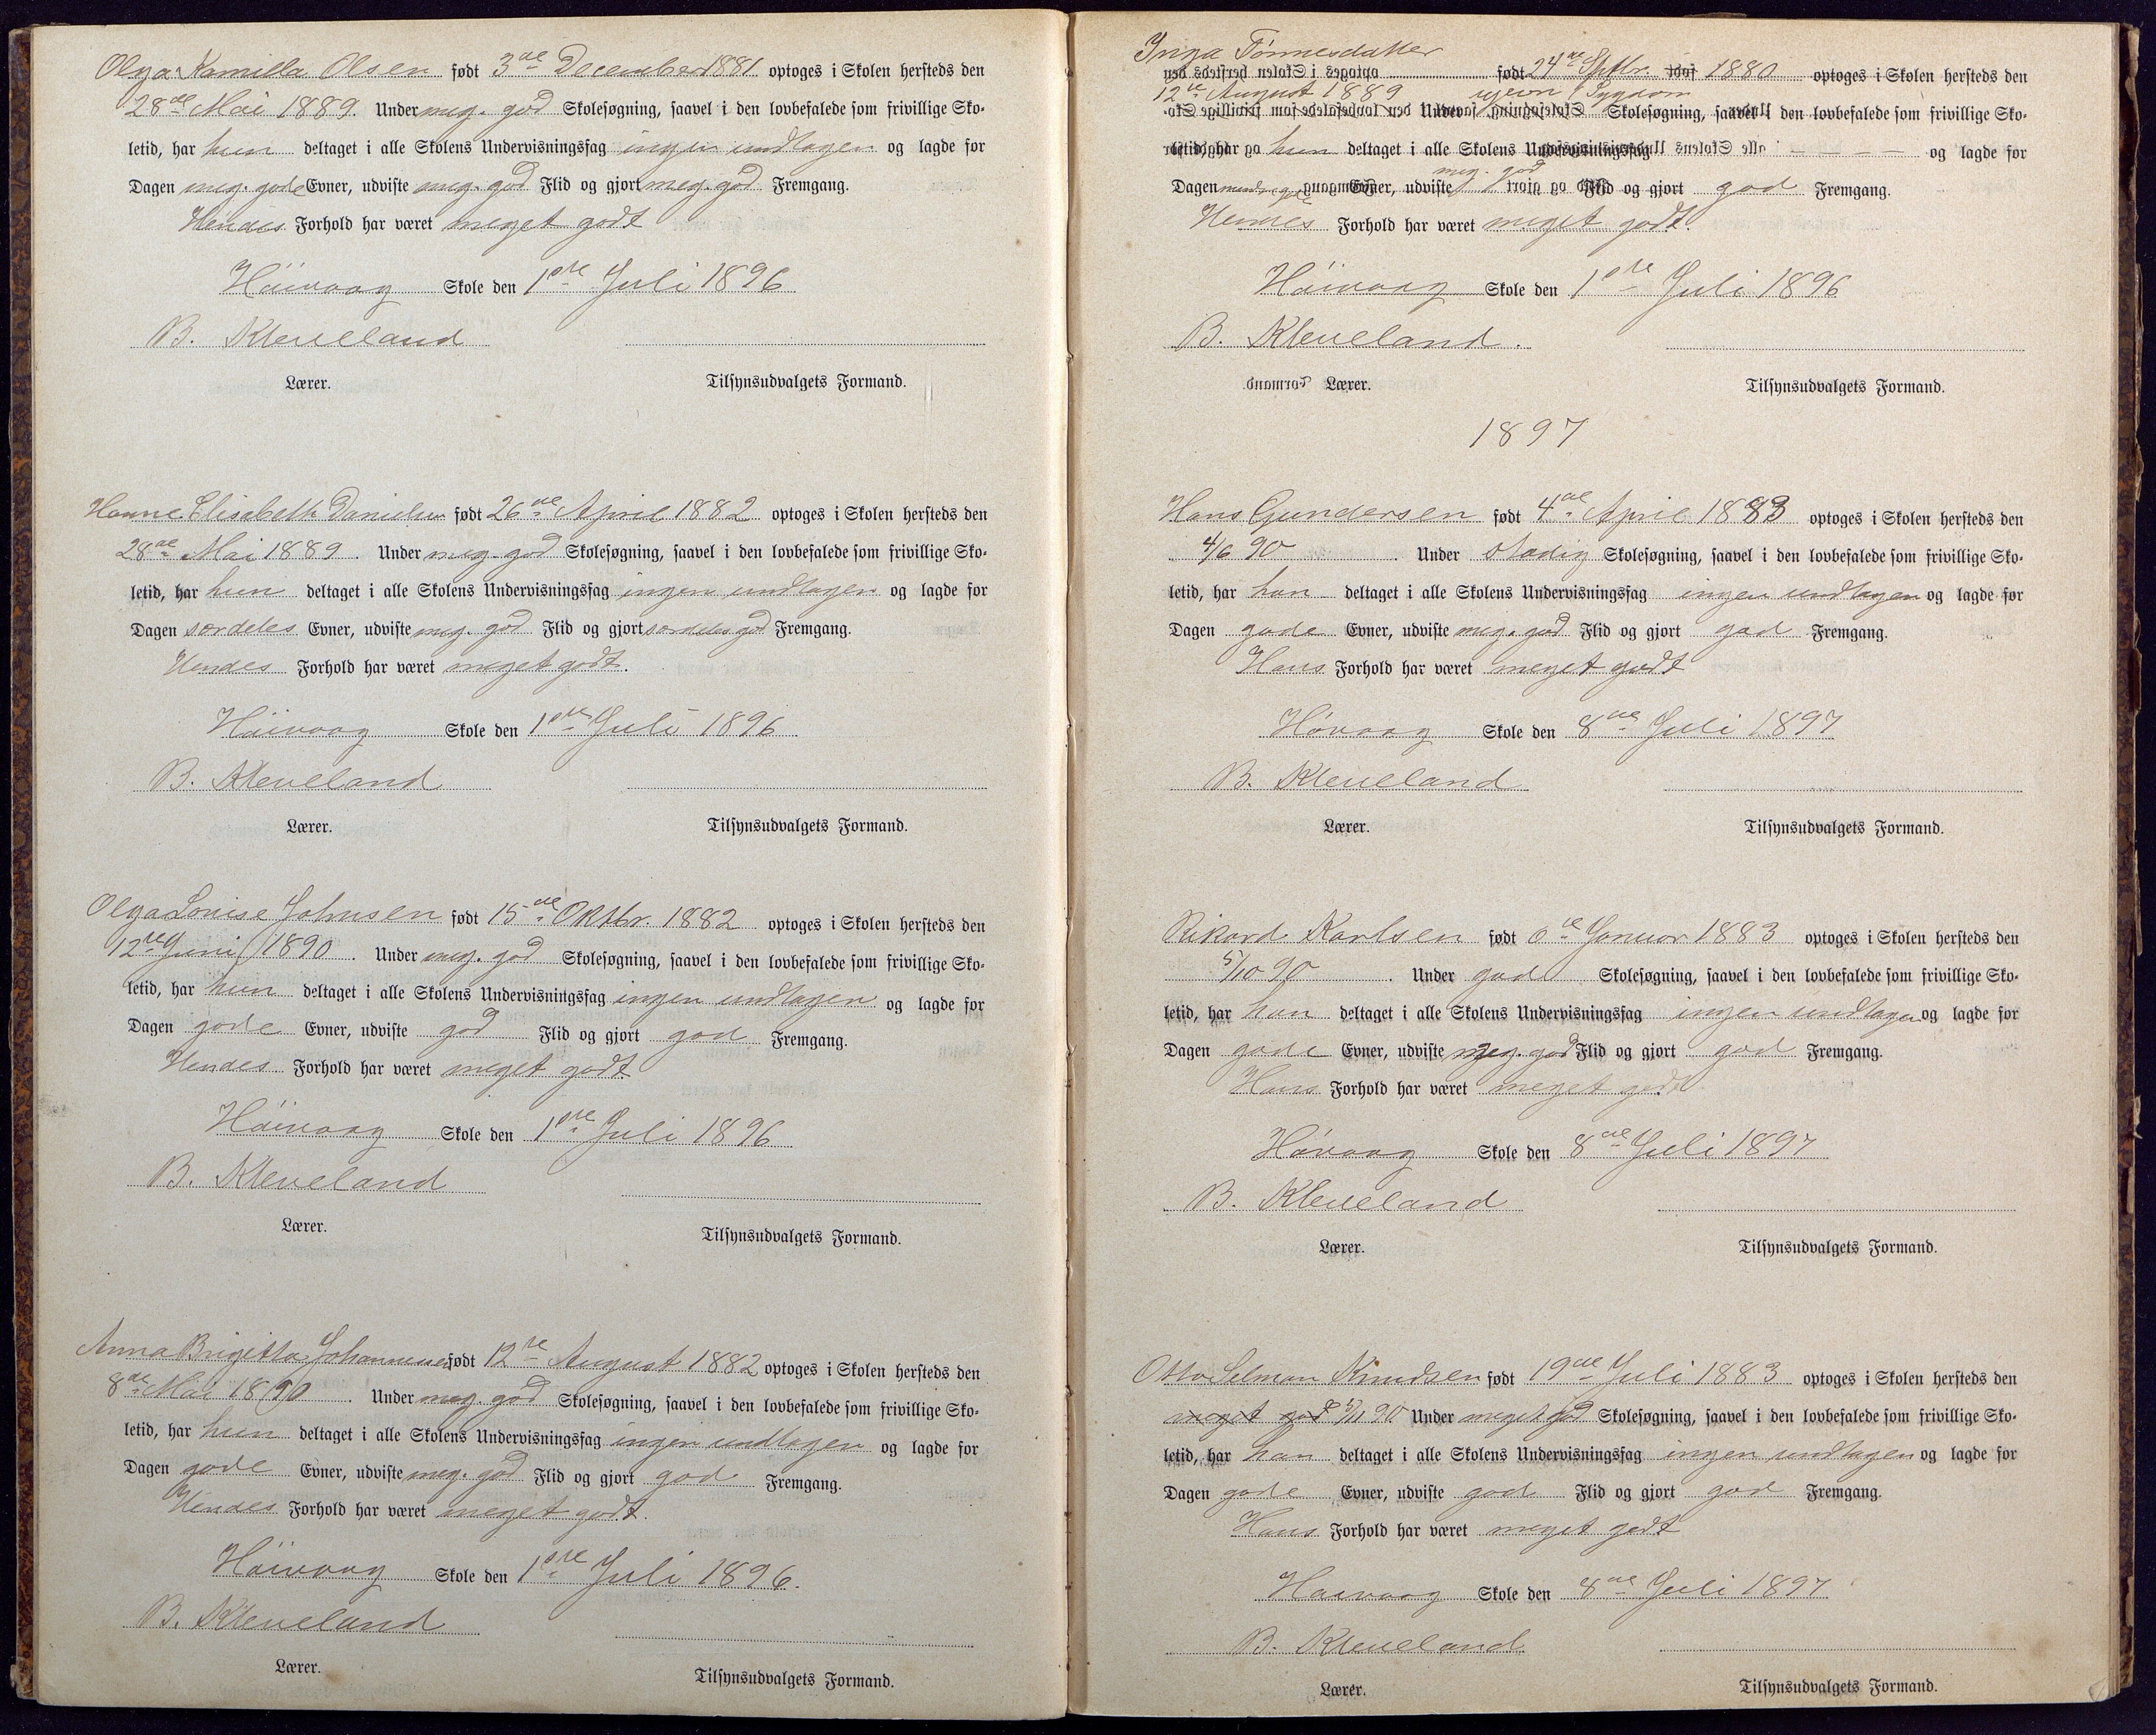 Olga Kamilla Olsen født 3de December 1881 optoges i Skolen hersteds den
28de Mai 1889. Under meg. god Skolesøgning, saavel i den lovbefalede som frivillige Sko-
letid, har hun deltaget i alle Skolens Undervisningsfag ingen undtagen og lagde for
Dagen meg. gode Evner, udviste meg. god Flid og gjort meg. god Fremgang.
Hendes Forhold har været meget godt
Höivaag Skole den 1ste Juli 1896
B. Kleveland
Lærer. Tilsynsudvalgets Formand.
Hanne Elisabeth Danielsen født 26de April 1882 optoges i Skolen hersteds den
28de Mai 1889. Under meg. god Skolesøgning, saavel i den lovbefalede som frivillige Sko-
letid, har hun deltaget i alle Skolens Undervisningsfag ingen undtagen og lagde for
Dagen særdeles Evner, udviste meg. god Flid og gjort særdeles god Fremgang.
Hendes Forhold har været meget godt.
Höivaag Skole den 1ste Juli 1896
B. Kleveland
Lærer. Tilsynsudvalgets Formand.
Olga Lovise Johnsen født 15de Oktbr. 1882 optoges i Skolen hersteds den
12te Juni 1890. Under meg. god Skolesøgning, saavel i den lovbefalede som frivillige Sko-
letid, har hun deltaget i alle Skolens Undervisningsfag ingen undtagen og lagde for
Dagen gode Evner, udviste god Flid og gjort god Fremgang.
Hendes Forhold har været meget godt
Höivaag Skole den 1ste Juli 1896
B. Kleveland
Lærer. Tilsynsudvalgets Formand.
Anna Brigitta Johannessen født 12te August 1882 optoges i Skolen hersteds den
8de Mai 1890. Under meg. god Skolesøgning, saavel i den lovbefalede som frivillige Sko-
letid, har hun deltaget i alle Skolens Undervisningsfag ingen undtagen og lagde for
Dagen gode Evner, udviste meg. god Flid og gjort god Fremgang.
Hendes Forhold har været meget godt.
Höivaag Skole den 1ste Juli 1896.
B. Kleveland
Lærer. Tilsynsudvalgets Formand.
Inga Tönnesdatter
født 24de Septbr. 1880 optoges i Skolen hersteds den
12te August 1889 Under Sygdom Skolesøgning, saavel i den lovbefalede som frivillige Sko-
letid, har hun deltaget i alle Skolens Undervisningsfag — — — — og lagde for
Dagen Evner, udviste meg. god Flid og gjort god Fremgang.
Hendes Forhold har været meget godt.
Höivaag Skole den 1ste Juli 1896
B. Kleveland.
Lærer. Tilsynsudvalgets Formand.
1897
Hans Gundersen født 4de April 1883 optoges i Skolen hersteds den
4/6 90. Under stadig Skolesøgning, saavel i den lovbefalede som frivillige Sko-
letid, har han deltaget i alle Skolens Undervisningsfag ingen undtagen og lagde for
Dagen gode Evner, udviste meg. god Flid og gjort god Fremgang.
Hans Forhold har været meget godt
Høvaag Skole den 8de Juli 1897
B. Kleveland
Lærer. Tilsynsudvalgets Formand.
Rikard Karlsen født 6te Januar 1883 optoges i Skolen hersteds den
5/10 90. Under god Skolesøgning, saavel i den lovbefalede som frivillige Sko-
letid, har han deltaget i alle Skolens Undervisningsfag ingen undtagen og lagde for
Dagen gode Evner, udviste meg. god Flid og gjort god Fremgang.
Hans Forhold har været meget godt
Høvaag Skole den 8de Juli 1897
B. Kleveland
Lærer. Tilsynsudvalgets Formand.
Otto Selman Knudsen født 19de Juli 1883 optoges i Skolen hersteds den
meget god 5/11 90 Under meget god Skolesøgning, saavel i den lovbefalede som frivillige Sko-
letid, har han deltaget i alle Skolens Undervisningsfag ingen undtagen og lagde for
Dagen gode Evner, udviste god Flid og gjort god Fremgang.
Hans Forhold har været meget godt
Høivaag Skole den 8de Juli 1897
B. Kleveland
Lærer. Tilsynsudvalgets Formand.